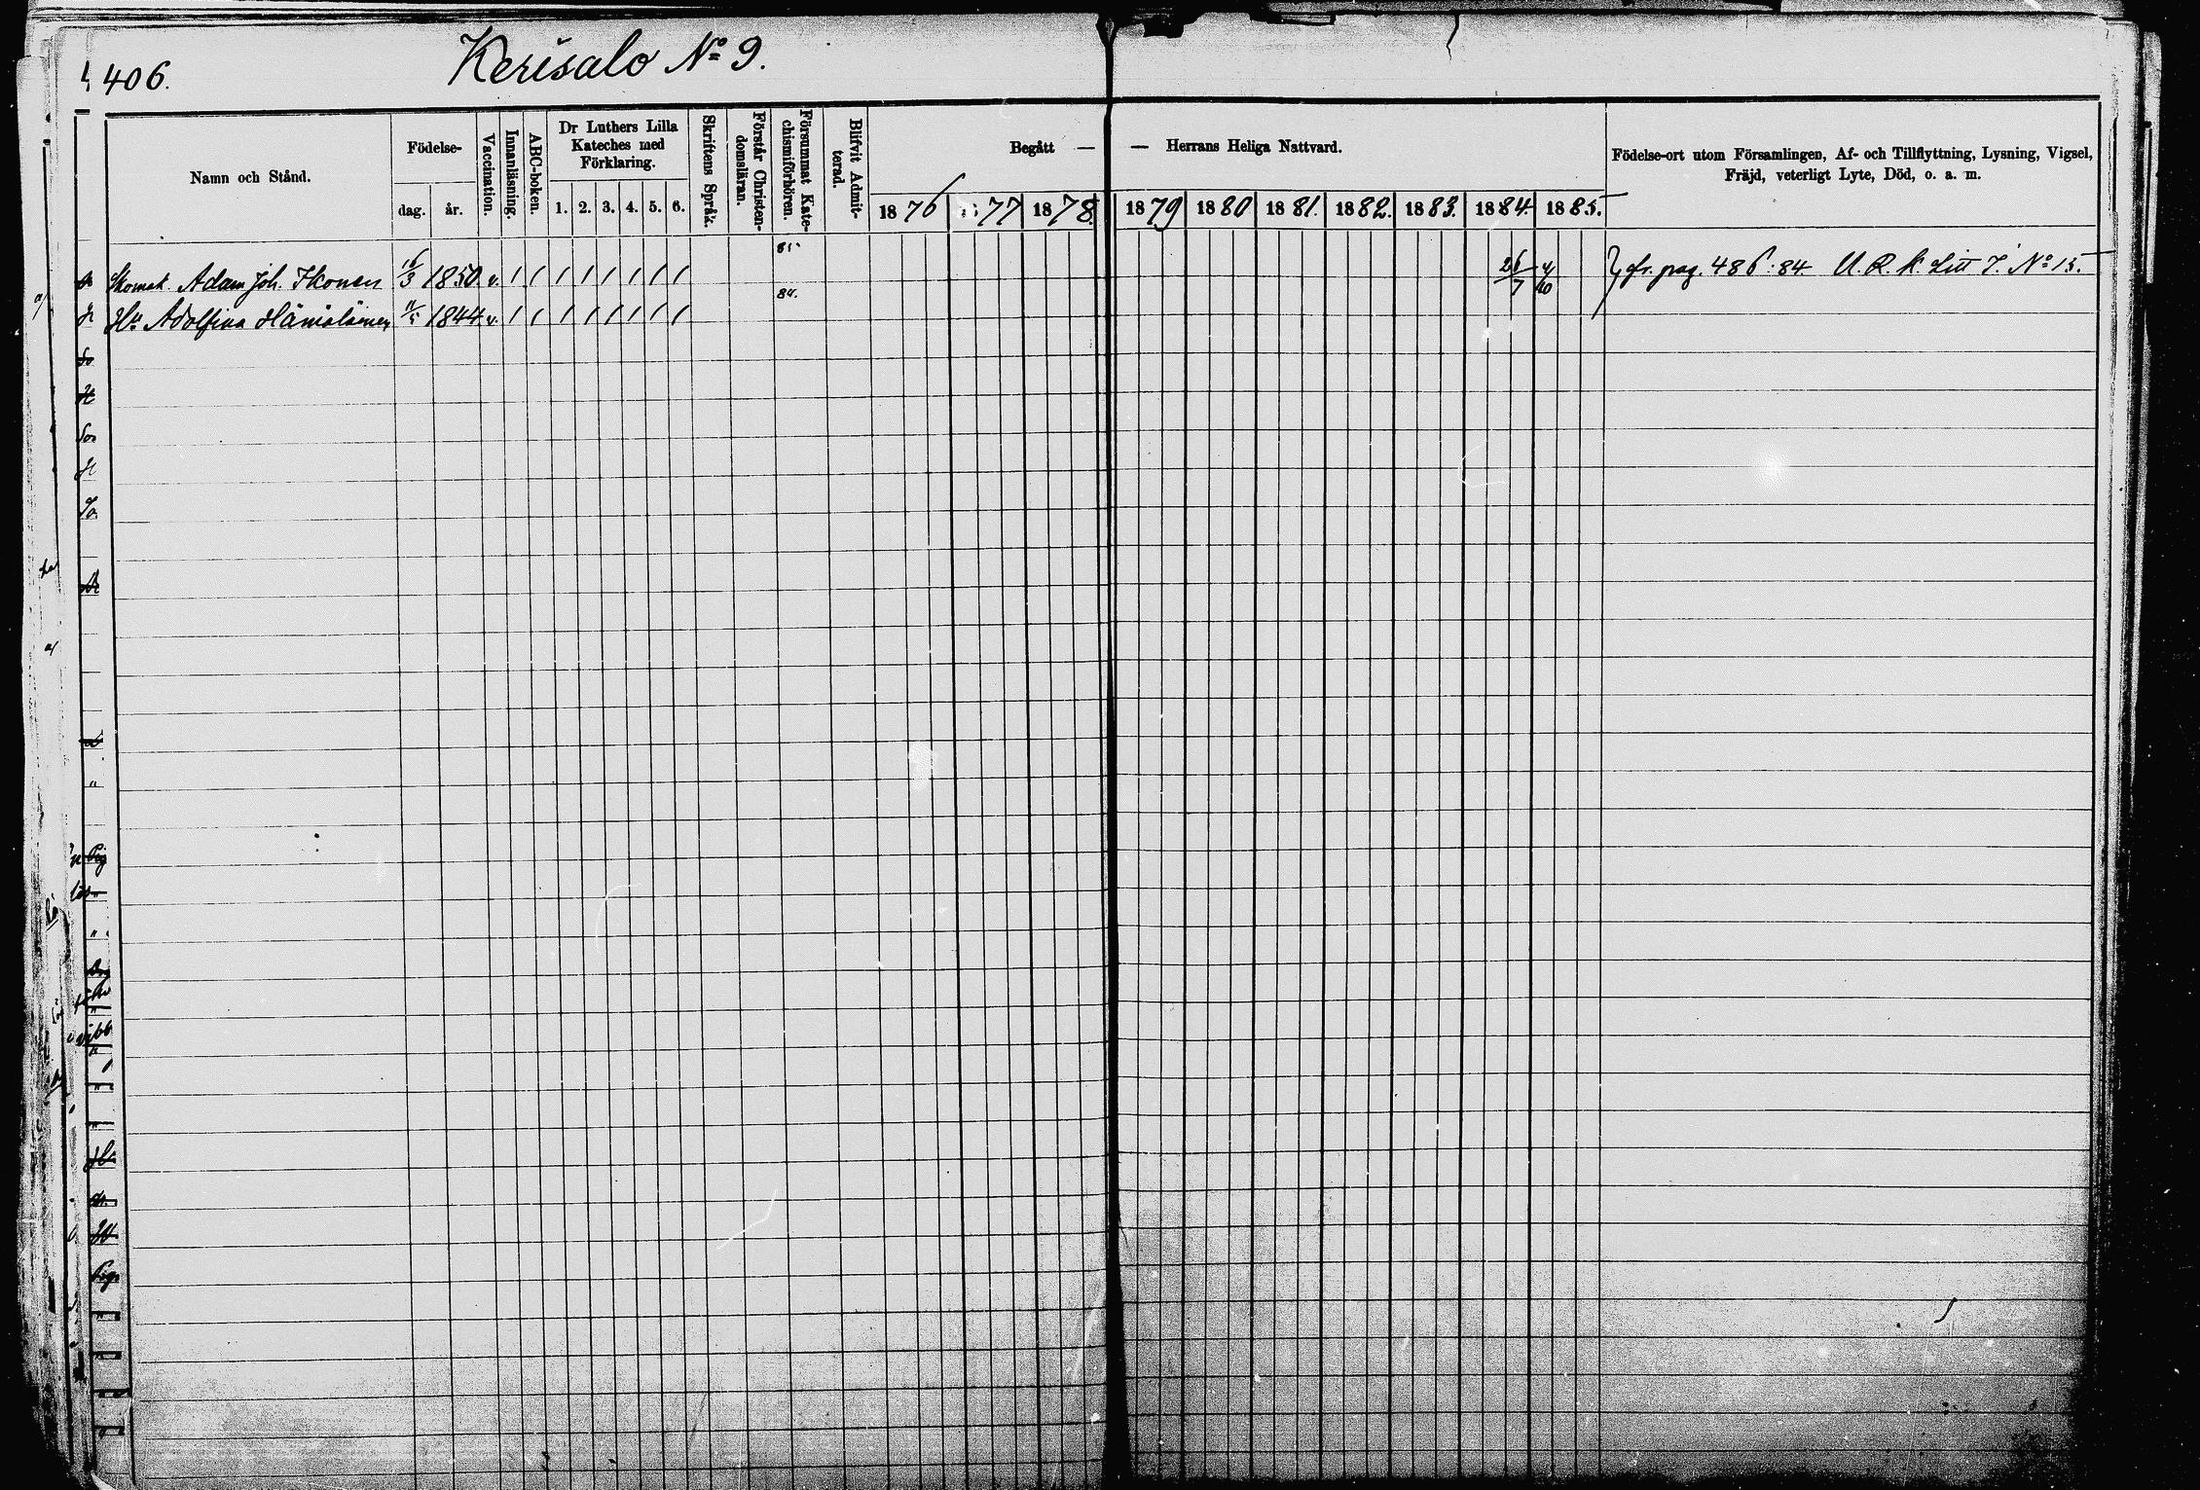 406.
Kerisalo No 9.
Namn och Stånd.
Födelse-
dag.
år.
Vaccination.
Innanläsning.
ABC-boken.
Dr Luthers Lilla
Kateches med
Förklaring.
1. 2. 3. 4. 5. 6.
Skriftens Språk.
Förstår Christen-
domsläran.
Försummat Kate-
chismiförhören.
Blifvit Admit-
terad.
Begått — — Herrans Heliga Nattvard.
1876 1877 1878. 1879 1880 1881. 1882. 1883. 1884. 1885.
Födelse-ort utom Församlingen, Af- och Tillflyttning, Lysning, Vigsel,
Fräjd, veterligt Lyte, Död, o. a. m.
Skomak. Adam Joh. Ikonen 16/3 1850. v. 85 26/7 4/10 fr. pag. 486:84 U. R. k. Litt J. No 15.
Hu Adolfina 11/5 1844. v. 84.